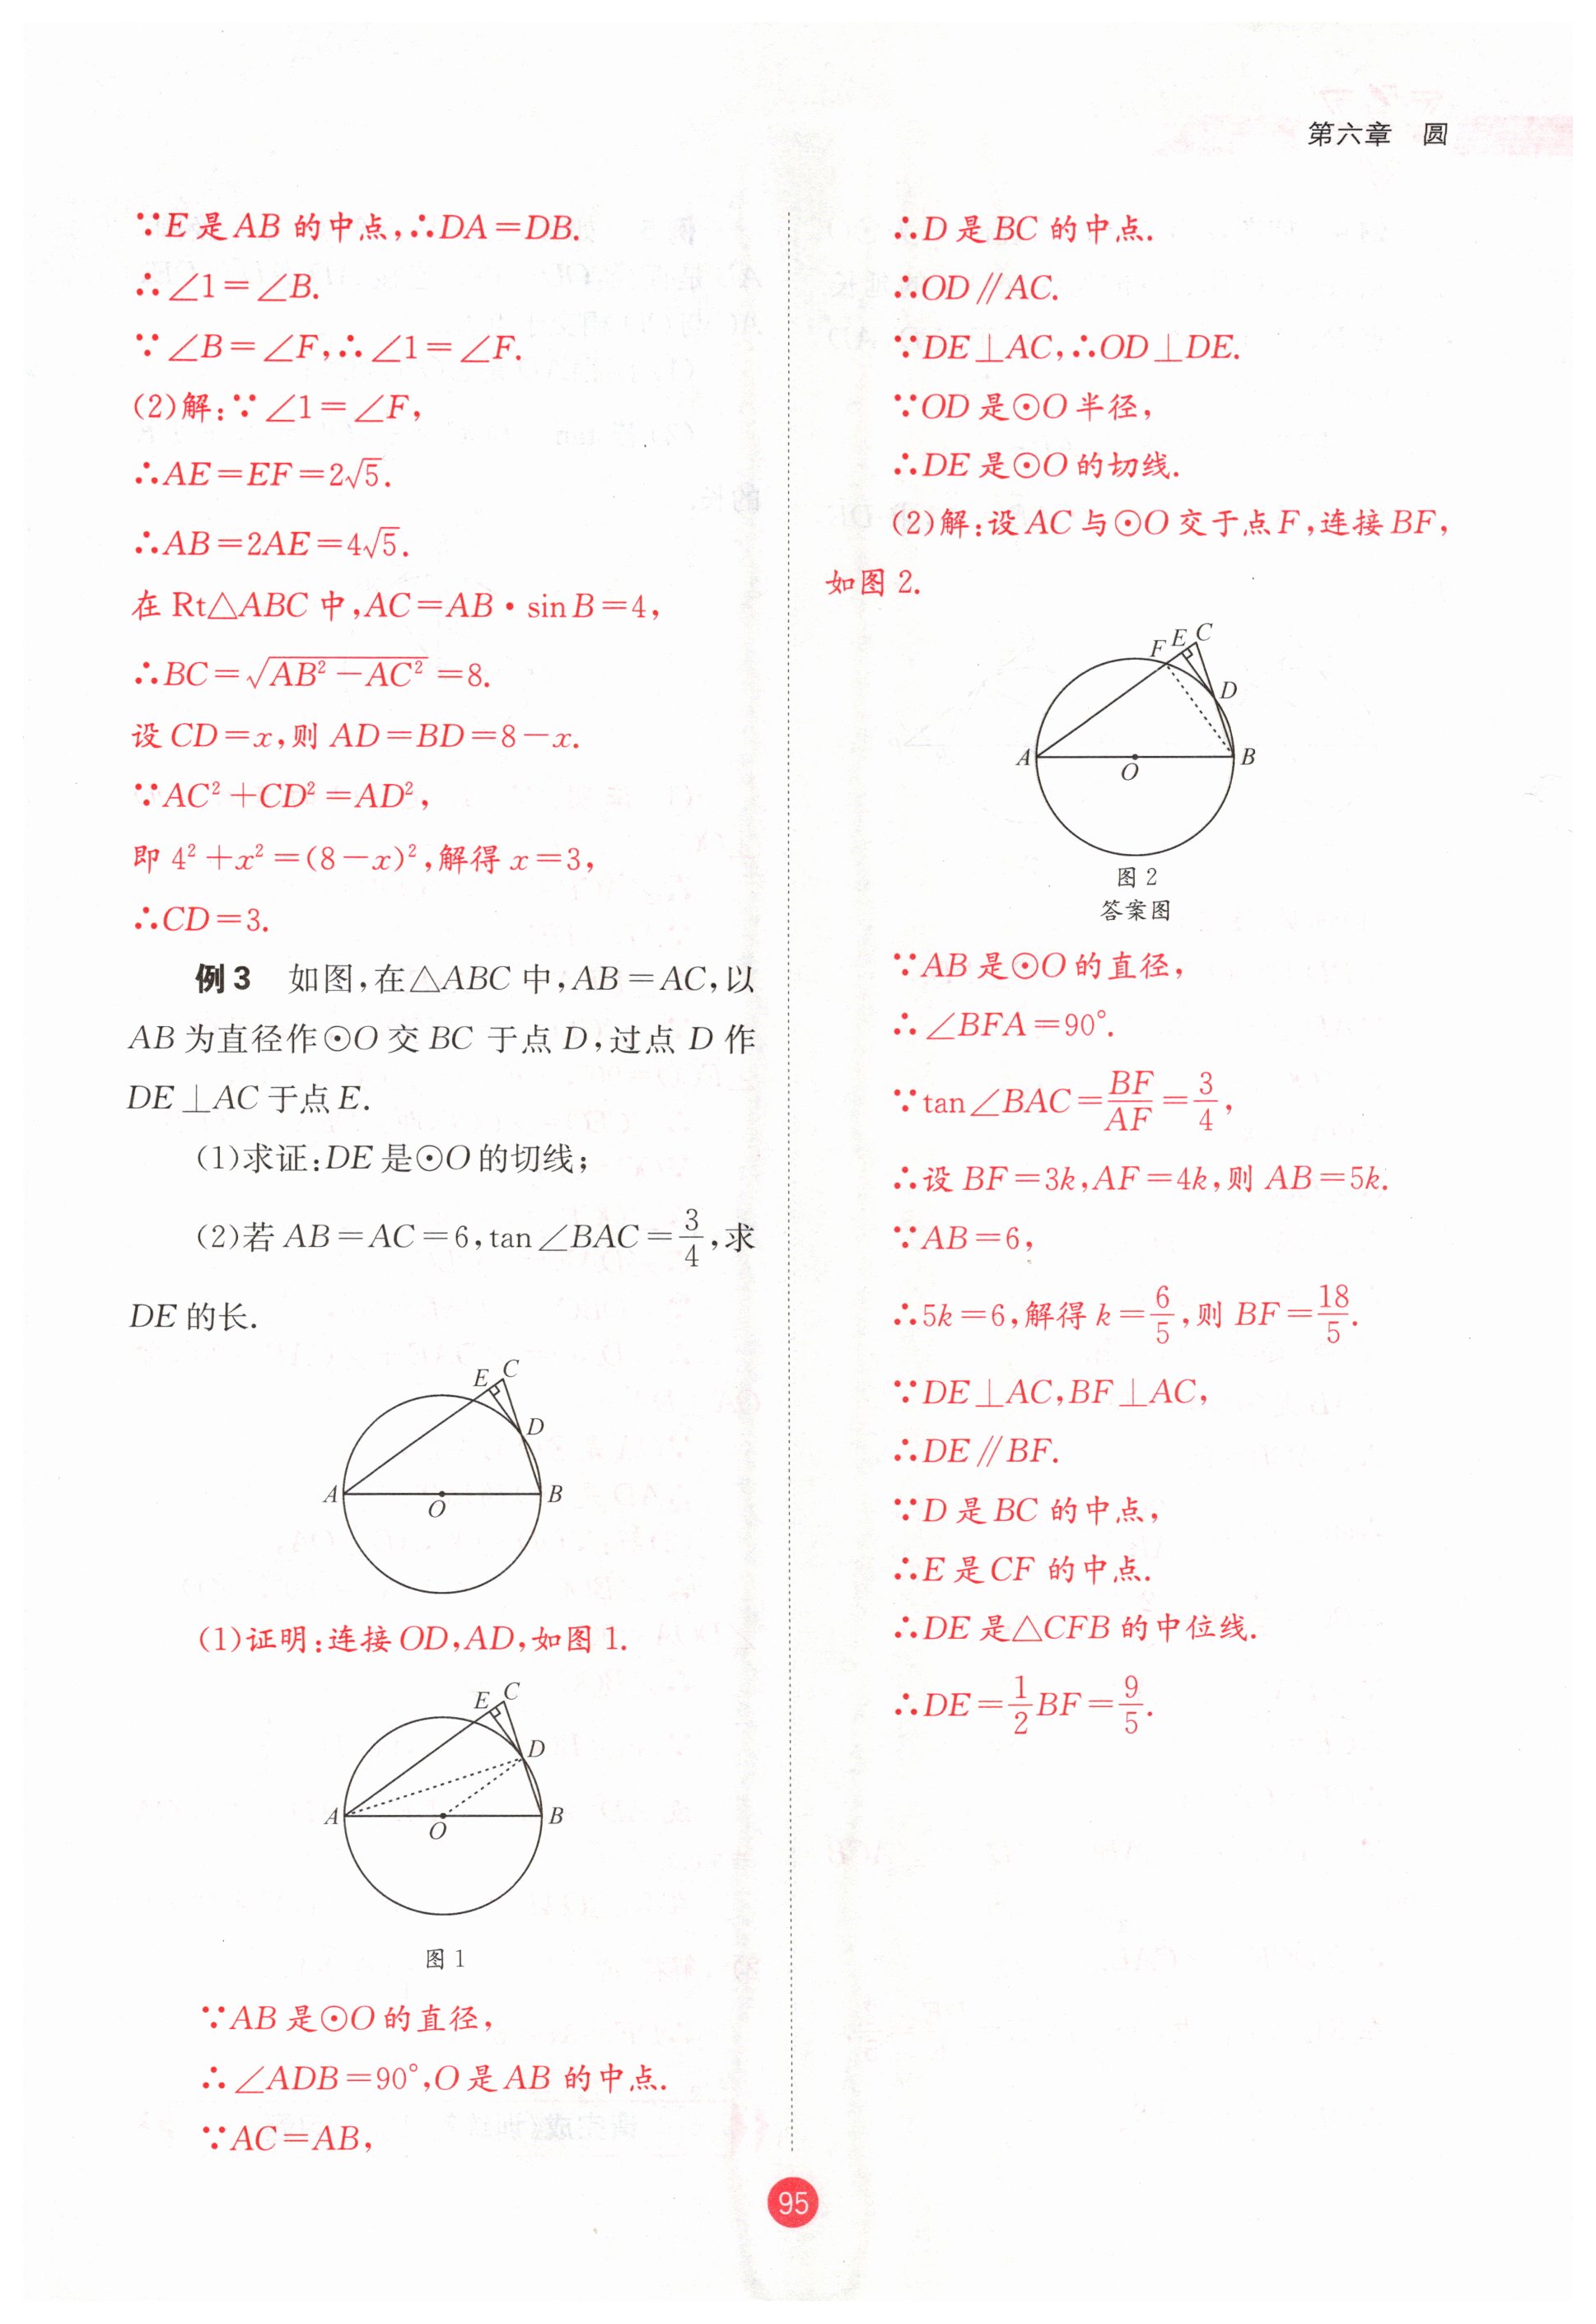 第六章 圆
∵E是AB的中点,∴DA=DB.
∴∠1=∠B.
∵∠B=∠F,∴∠1=∠F.
(2)解:∵∠1=∠F,
∴AE=EF=2√5.
∴AB=2AE=4√5.
在Rt△ABC中,AC=AB·sinB=4,
∴BC=√(AB²-AC²)=8.
设CD=x,则AD=BD=8-x.
∵AC²+CD²=AD²,
即4²+x²=(8-x)²,解得x=3,
∴CD=3.
例3 如图,在△ABC中,AB=AC,以
AB为直径作⊙O交BC于点D,过点D作
DE⊥AC于点E.
(1)求证:DE是⊙O的切线;
(2)若AB=AC=6,tan∠BAC=3/4,求
DE的长.
E C
D
A O B
(1)证明:连接OD,AD,如图1.
E C
D
A O B
图1
∵AB是⊙O的直径,
∴∠ADB=90°,O是AB的中点.
∵AC=AB,
∴D是BC的中点.
∴OD∥AC.
∵DE⊥AC,∴OD⊥DE.
∵OD是⊙O半径,
∴DE是⊙O的切线.
(2)解:设AC与⊙O交于点F,连接BF,
如图2.
F E C
D
A O B
图2
答案图
∵AB是⊙O的直径,
∴∠BFA=90°.
∵tan∠BAC=BF/AF=3/4,
∴设BF=3k,AF=4k,则AB=5k.
∵AB=6,
∴5k=6,解得k=6/5,则BF=18/5.
∵DE⊥AC,BF⊥AC,
∴DE∥BF.
∵D是BC的中点,
∴E是CF的中点.
∴DE是△CFB的中位线.
∴DE=1/2BF=9/5.
95